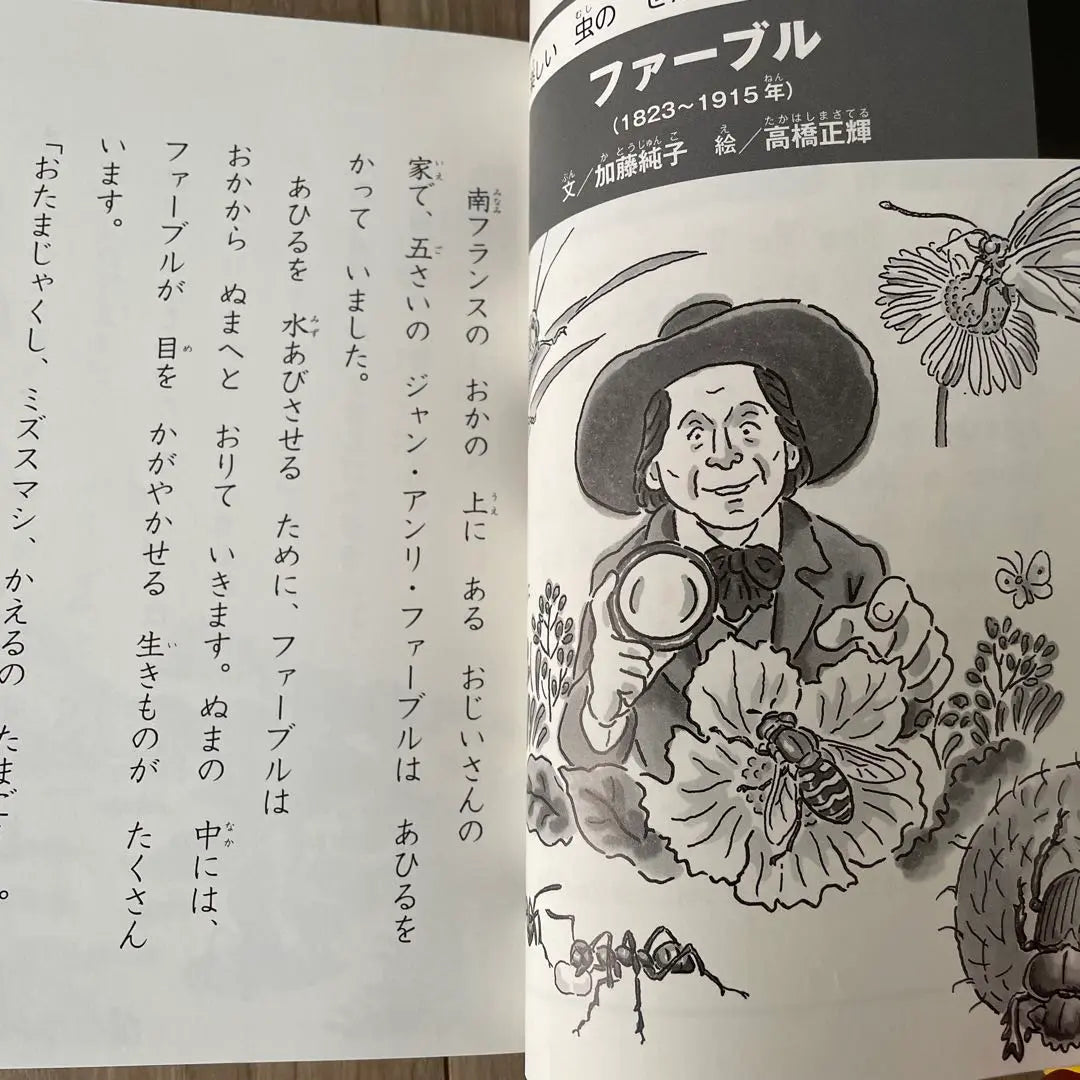 虫の
ファーブル
(1823〜1915年)
文/加藤純子 絵/高橋正輝
南フランスの おかの 上に ある おじいさんの
家で、五さいの ジャン・アンリ・ファーブルは あひるを
かって いました。
あひるを 水あびさせる ために、ファーブルは
おかから ぬまへと おりて いきます。ぬまの 中には、
ファーブルが 目を かがやかせる 生きものが たくさん
います。
「おたまじゃくし、ミズスマシ、かえるの